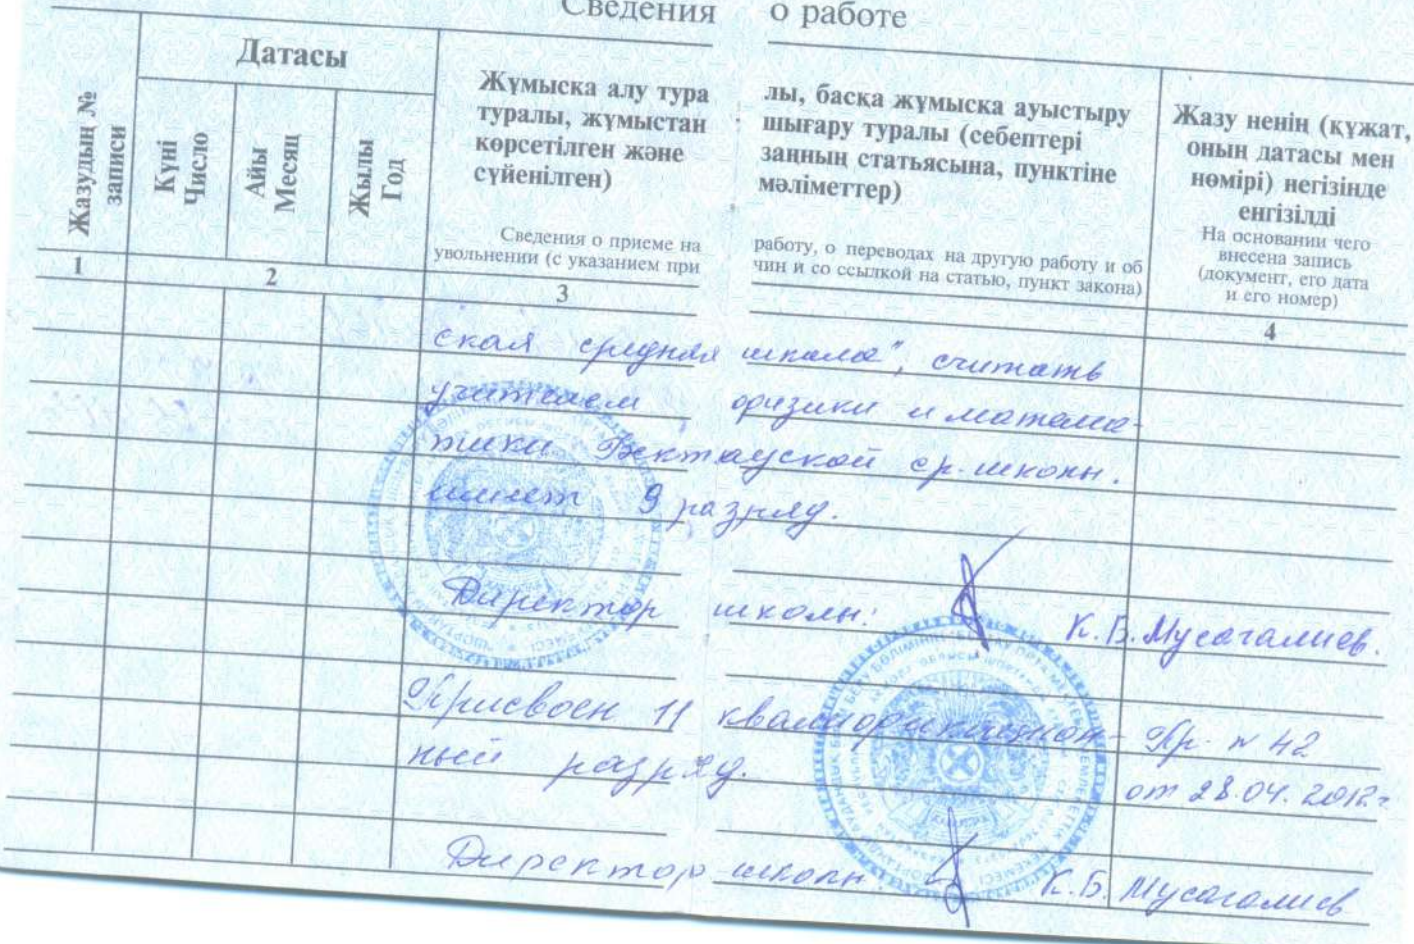 Сведения о работе
Жазудың № записи
Датасы
Күні Число
Айы Месяц
Жылы Год
Жұмысқа алу тура
туралы, жұмыстан
көрсетілген және
сүйенілген)
Сведения о приеме на
увольнении (с указанием при
лы, басқа жұмысқа ауыстыру
шығару туралы (себептері
заңның статьясына, пунктіне
мәліметтер)
работу, о переводах на другую работу и об
чин и со ссылкой на статью, пункт закона)
Жазу ненің (құжат,
оның датасы мен
нөмірі) негізінде
енгізілді
На основании чего
внесена запись
(документ, его дата
и его номер)
1 2 3 4
ская средняя школа", считать
учителем физики и матема-
тики Бектауской ср. школы.
имеет 9 разряд.
Директор школы: К.Б. Мусагалиев.
Присвоен 11 квалификацион- Пр. № 42
ный разряд. от 28.04.2012г
Директор школы К.Б. Мусагалиев